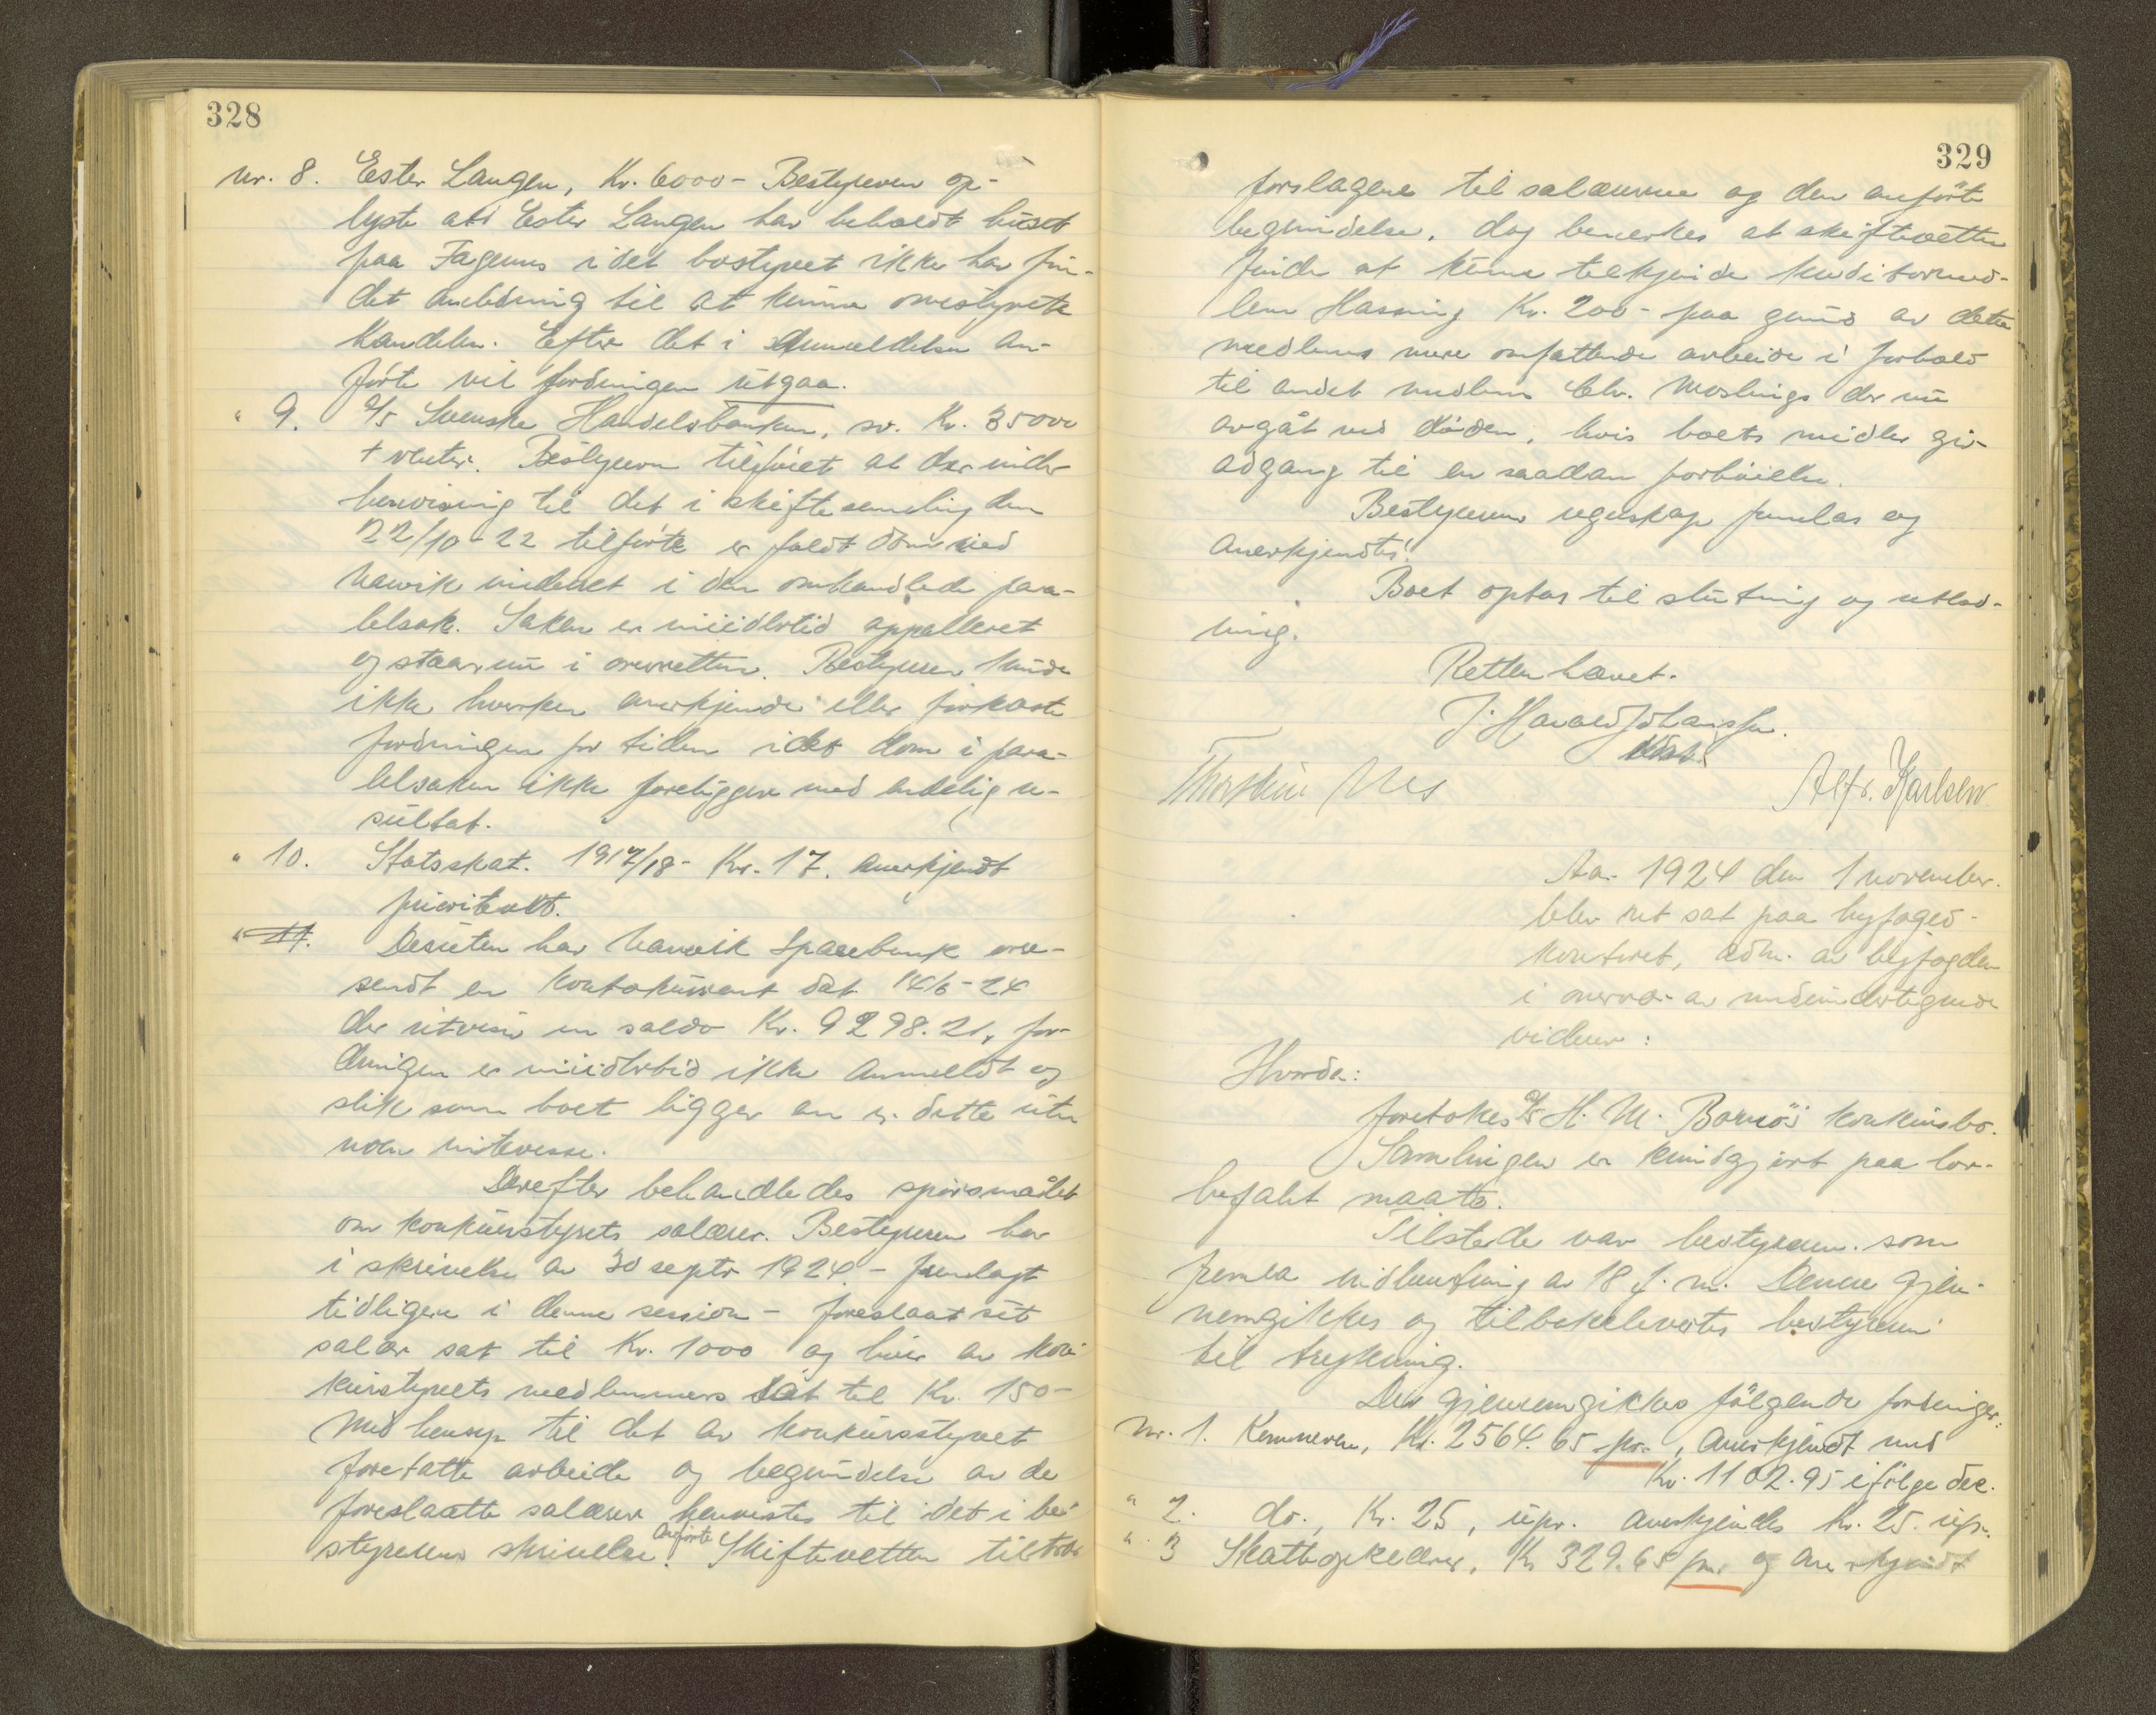 328
nr. 8. Ester Langen, Kr. 6000 - Bestyreren op-
lyste at Ester Langen har beholdt huset
paa Fagernes idet bostyret ikke har fun-
det anledning til at kunne omstyrte
handelen. Efter det i anmeldelsen an-
førte vil fordringen utgaa.
" 9. A/S Svenske Handelsbanken, sv. Kr. 35000
+ renter. Bestyreren tilføiet at der under
henvisning til det i skiftesamling den
22/10-22 tilførte er faldt dom ved
Narvik underret i den omhandlede para-
lelsak. Saken er imidlertid appelleret
og staar nu i overretten. Bestyreren kunde
ikke hverken anerkjende eller forkaste
fordringen for tiden idet dom i para-
lelsaken ikke foreligger med endelig re-
sultat.
" 10. Statsskat. 1917/18 - Kr. 17. anerkjendt
prioritert.
" 11. Desuten har Narvik Sparebank over-
sendt en kontokurant dat 14/6-24
der utviser en saldo Kr. 9298.21, for-
dringen er imidlertid ikke anmeldt og
slik som boet ligger an er dette uten
noen interesse.
Derefter behandledes spørsmålet
om konkursstyrets salærer. Bestyreren har
i skrivelse av 30 septr 1924 - fremlagt
tidligere i denne session - foreslaat sit
salær sat til Kr. 1000 og hver av kon-
kursstyrets medlemmers sat til Kr. 150 -
Med hensyn til det av konkursstyret
foretatte arbeide og begrundelse av de
foreslaatte salærer henvistes til det i be-
styrerens skrivelse anførte. Skifteretten tiltrær
329
forslagene til salærerne og den anførte
begrundelse, dog bemerkes at skifteretten
finder at kunne tilkjende kreditormed-
lem Hassing Kr. 200 - paa grund av dette
medlems mere omfattende arbeide i forhold
til andet medlem Chr. Moslings der nu
avgåt ved døden, hvis boets midler gir
adgang til en saadan forhøielse.
Bestyrerens regnskap fremlas og
anerkjendtes.
Boet optas til slutning og utlod-
ning.
Retten hævet.
J. Harald Johanssen
Thorstein Nes Alfr. Karlsen
Aar 1924 den 1 november
blev ret sat paa byfoged-
kontoret, adm. av byfogden
i overvær av undertegnede
vidner:
Hvorda:
foretokes A/S H. M. Bornøs konkursbo.
Samlingen er kundgjort paa lov-
befalt maate.
Tilstede var bestyreren som
fremla indberetning av 18 f. m. Denne gjen-
nemgikkes og tilbakeleverts bestyreren
til trykning.
Der gjennemgikkes følgende fordringer:
nr. 1. Kemneren, Kr. 2564.65 pr., anerkjendt med
Kr. 1102.95 ifølge dec.
" 2. do., Kr. 25, upr. anerkjendes kr. 25. upr.
" 3 Skatteopkræver, Kr 329.65 pr. og anerkjendt